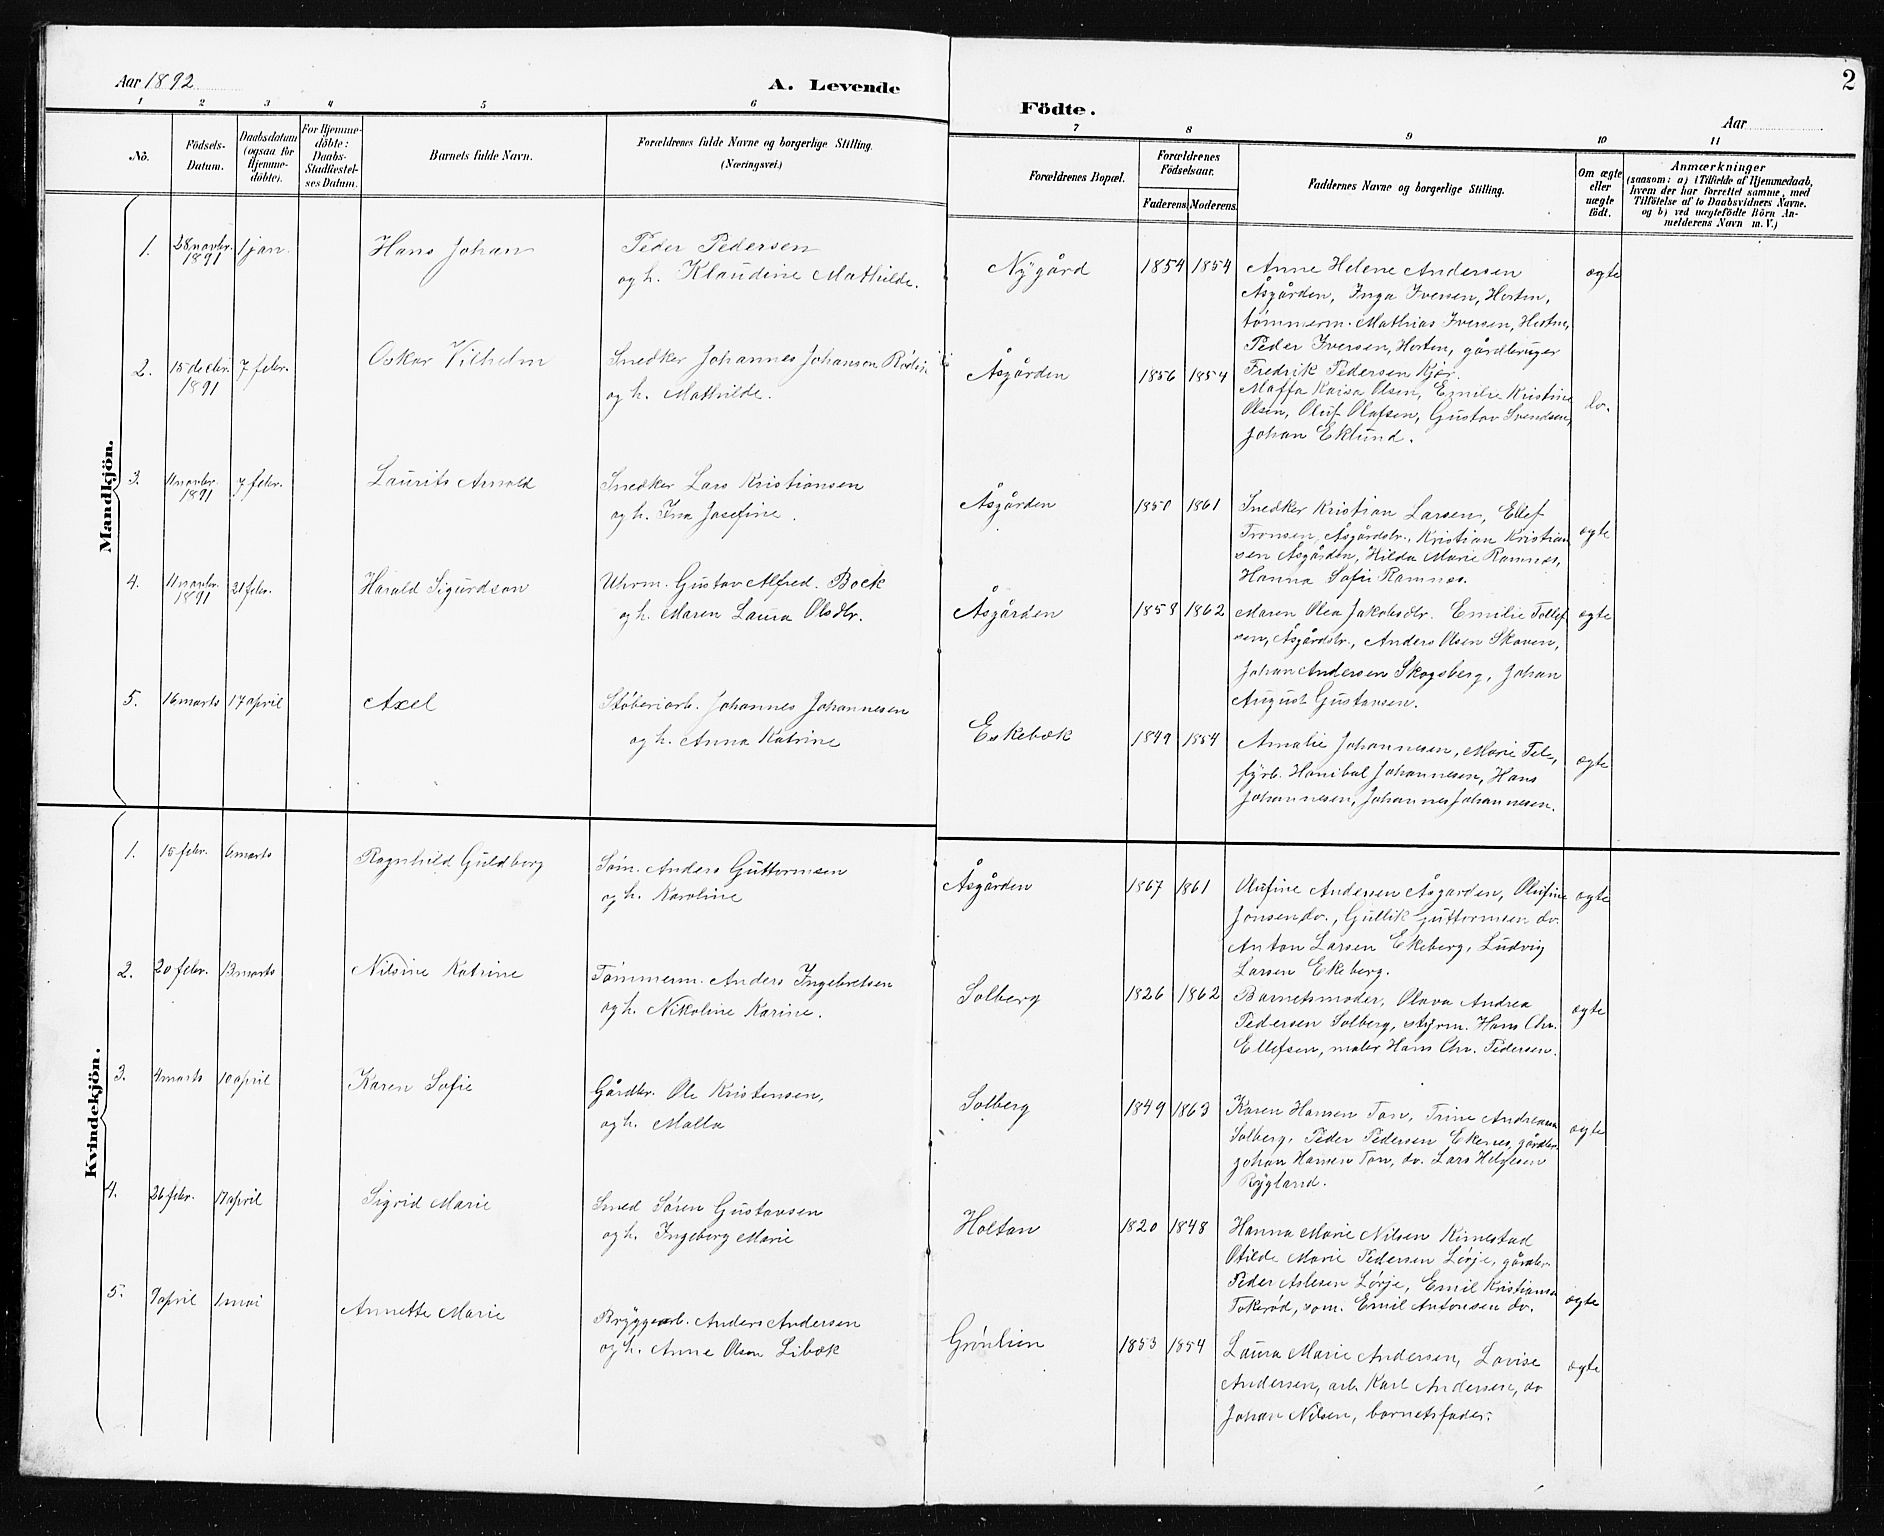 Aar 1892
A. Levende
Födte.
2
Aar
1 2 3 4 5 6 7 8 9 10 11
Nö.
Födsels-
Datum.
Daabsdatum
(ogsaa for
Hjemme-
döbte).
For Hjemme-
döbte:
Daabs-
Stadfæstel-
ses Datum.
Barnets fulde Navn.
Forældrenes fulde Navne og borgerlige Stilling.
(Næringsvei.)
Forældrenes Bopæl.
Forældrenes
Födselsaar.
Faderens. Moderens.
Faddernes Navne og borgerlige Stilling.
Om ægte
eller
uægte
födt.
Anmærkninger
(saasom: a) i Tilfælde af Hjemmedaab,
hvem der har forrettet samme, med
Tilföielse af to Daabsvidners Navne.
og b) ved uægtefödte Börn An-
melderens Navn m. V.)
Mandkjön.
1. 28 novbr. 1891 1 jan. Hans Johan
Peder Pedersen
og h. Klaudine Mathilde.
Nygård 1854 1854
Anne Helene Andersen
Åsgården, Inga Iversen, Horten,
tømmerm. Mathias Iversen, Horten,
Peder Iversen, Horten, gårdbruger
Fredrik Pedersen Kjær.
ægte
2. 15 decbr. 1891 7 febr. Oskar Vilhelm
Snedker Johannes Johanson
og h. Mathilde.
Åsgården 1856 1854
Maffa Kaisa Olsen, Emilie Kristine
Olsen, Oluf Olafsen, Gustav Svendsen,
Johan Eklund.
do.
3. 11 novbr. 1891 7 febr. Laurits Arnold
Snedker Lars Kristiansen
og h. Ina Josefine.
Åsgården 1850 1861
Snedker Kristian Larsen, Ellef
Tronsen, Åsgårdstr., Kristian Kristian
sen Åsgården, Hilda Marie Ramnes,
Hanna Sofie Ramnes.
ægte
4. 11 novbr. 1891 21 febr. Harald Sigurdson
Uhrm. Gustav Alfred Boek
og h. Maren Laura Olsdtr.
Åsgården 1858 1862
Maren Olea Jakobsdtr. Emilie Tollef
sen, Åsgårdstr., Anders Olsen Skoven,
Johan Andersen Skogsberg, Johan
August Gustavsen.
ægte
5. 16 marts 17 april Axel
Støberiarb. Johannes Johannesen
og h. Anna Katrine
Eskebæk 1849 1854
Amalie Johannesen, Marie
fyrb. Hanibal Johannesen, Hans
Johannesen, Johannes Johannesen.
ægte
Kvindekjön.
1. 15 febr. 6 marts Ragnhild Guldborg
Søm. Anders Guttormsen
og h. Karoline
Åsgården 1867 1861
Olufine Andersen Åsgården, Olufine
Jonsen do., Gullik Guttormsen do.
Anton Larsen Ekeberg, Ludvig
Larsen Ekeberg.
ægte
2. 20 febr. 13 marts Nilsine Katrine
Tømmerm. Anders Ingebretsen
og h. Nikoline Karine.
Solberg 1826 1862
Barnetsmoder, Olava Andrea
Pedersen Solberg, styrm. Hans Chr.
Ellefsen, maler Hans Chr. Pedersen.
ægte
3. 4 marts 10 april Karen Sofie
Gårdbr. Ole Kristensen,
og h. Malla
Solberg 1849 1863
Karen Hansen Ton, Trine Andreasen
Solberg, Peder Pedersen Ekenes, gårdbr.
Johan Hansen Ton, do. Lars Helgesen
Rygland.
ægte
4. 26 febr. 17 april Sigrid Marie
Smed Søren Gustavsen
og h. Ingeborg Marie
Holtan 1820 1848
Hanna Marie Nilsen Kimestad
Otilde Marie Pedersen Lørje, gårdbr.
Peder Aslesen Lørje, Emil Kristiansen
Tokerød, søm. Emil Antonsen do.
ægte
5. 7 april 1 mai Annette Marie
Bryggearb. Anders Andersen
og h. Anne Olsen Libæk
Grønlien 1853 1854
Laura Marie Andersen, Lovise
Andersen, arb. Karl Andersen, do
Johan Nilsen, barnetsfader.
ægte